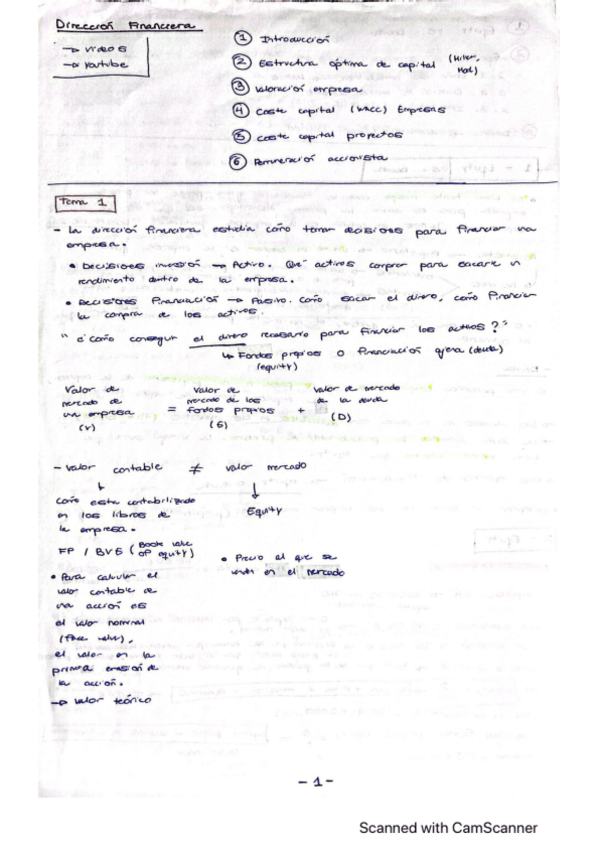 Dirección Financiera
→ videos
→ Youtube
① Introducción
② Estructura óptima de capital (Miller, Mod.)
③ Valoración empresa
④ Coste capital (WACC) Empresas
⑤ Coste capital proyectos
⑥ Remuneración accionista
Tema 1
- La dirección financiera estudia cómo tomar decisiones para financiar una
empresa.
• Decisiones inversión → Activo. Qué activos comprar para sacarle un
rendimiento dentro de la empresa.
• Decisiones Financiación → Pasivo. Cómo sacar el dinero, cómo financiar
la compra de los activos.
"¿Cómo conseguir el dinero necesario para financiar los activos?"
↳ Fondos propios o financiación ajena (deuda)
(equity)
Valor de mercado de una empresa (V) = Valor de mercado de los fondos propios (E) + Valor de mercado de la deuda (D)
- Valor contable ≠ valor mercado
↓
Como esta contabilizado
en los libros de
la empresa.
FP / BVE (Book value of equity)
• Para calcular el
valor contable de
una acción es
el valor nominal
(face value),
el valor en la
primera emisión de
la acción.
→ valor teórico
↓
Equity
• Precio al que se
vende en el mercado
- 1 -
Scanned with CamScanner